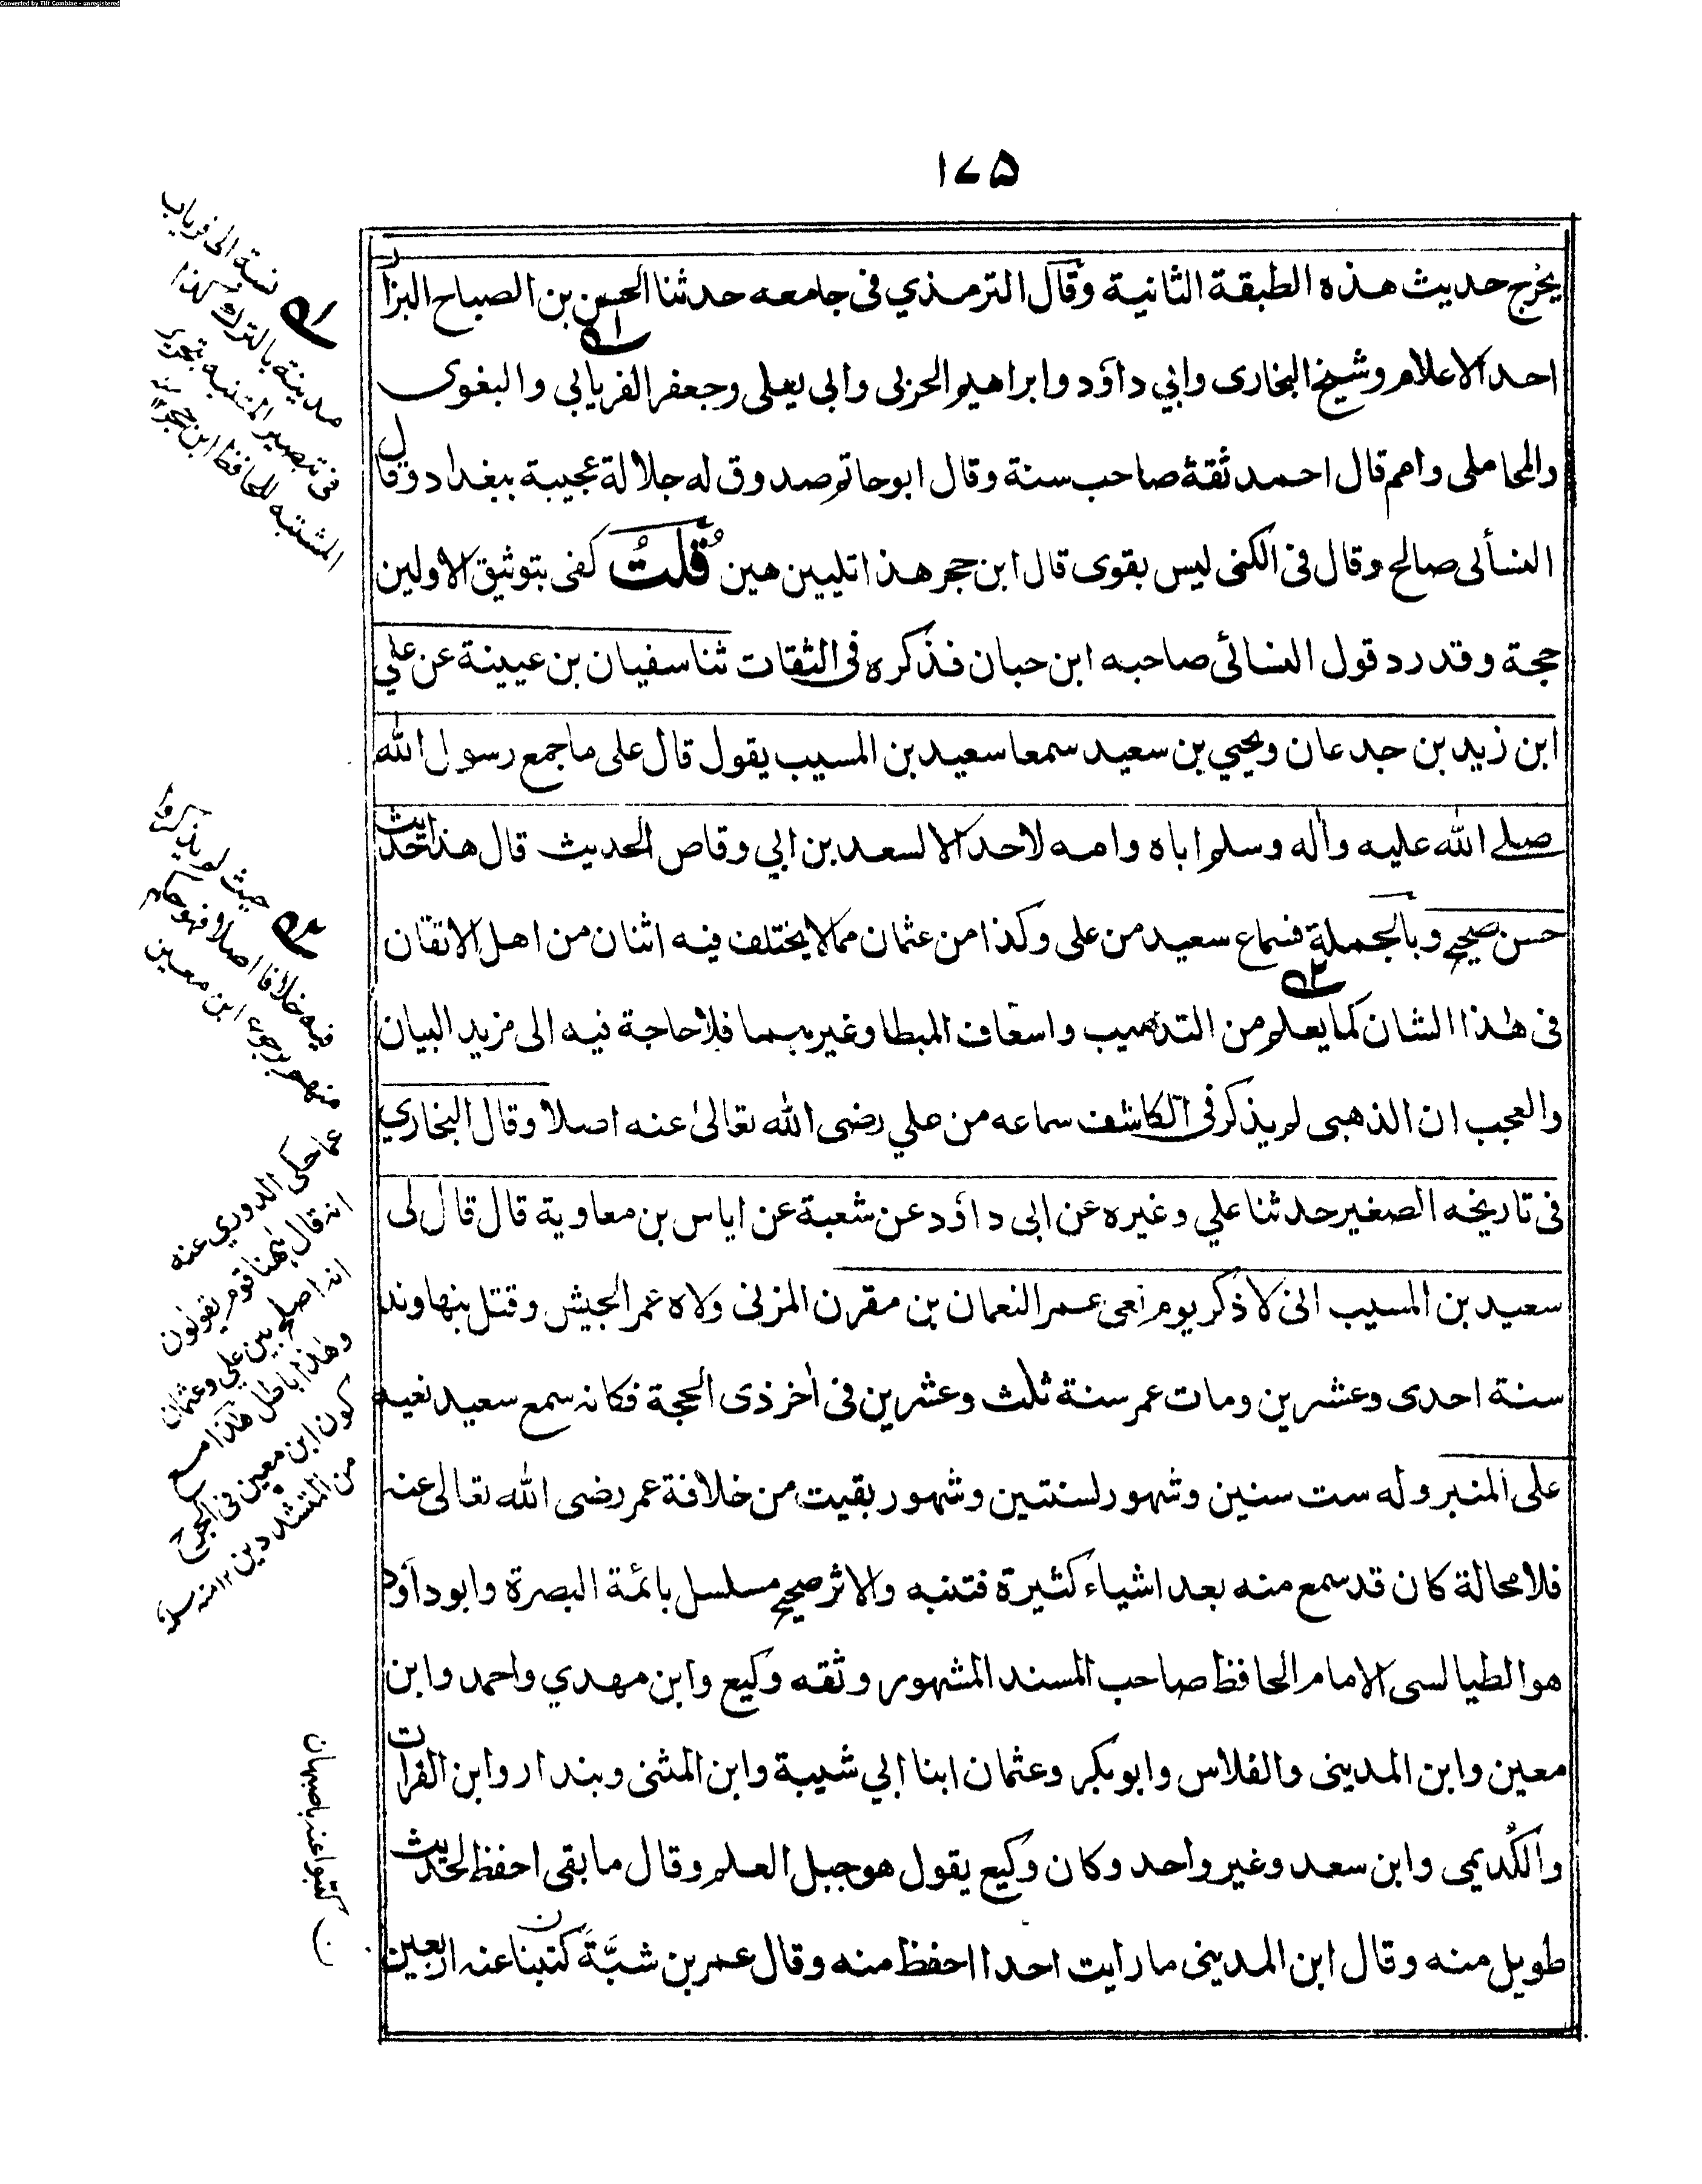 Converted by Tiff Combine - unregistered
۱۷۵
يخرج حديث هذه الطبقة الثانية وقال الترمذي فى جامعه حدثنا الحسن بن الصباح البزار
احد الاعلام وشيخ البخارى وابي داؤد وابراهيم الحربى وابى يعلى وجعفر الفريابي والبغوى
والمحاملى وامم قال احمد ثقة صاحب سنة وقال ابوحاتم صدوق له جلالة عجيبة ببغداد وقال
النسائى صالح وقال فى الكنى ليس بقوى قال ابن حجر هذا تليين هين قُلتُ كفى بتوثيق الاولين
حجة وقد رد قول النسائى صاحبه ابن حبان فذكره فى الثقات ثنا سفيان بن عيينة عن علي
ابن زيد بن جدعان ويحيي بن سعيد سمعا سعيد بن المسيب يقول قال على ما جمع رسول الله
صلے الله عليه واٰله وسلم اباه وامه لاحد الا لسعد بن ابي وقاص الحديث قال هذا حديث
حسن صحيح وبالجملة فسماع سعيد من على وكذا من عثمان مما لا يختلف فيه اثنان من اهل الاتقان
فى هٰذا الشان كما يعلم من التذهيب واسعاف المبطا وغيرهما فلا حاجة فيه الى مزيد البيان
والعجب ان الذهبى لم يذكر فى الكاشف سماعه من علي رضى الله تعالىٰ عنه اصلا وقال البخاري
فى تاريخه الصغير حدثنا علي وغيره عن ابى داؤد عن شعبة عن اياس بن معاوية قال قال لى
سعيد بن المسيب انى لاذكر يوم نعى عمر النعمان بن مقرن المزنى ولاه عمر الجيش وقتل بنهاوند
سنة احدى وعشرين ومات عمر سنة ثلث وعشرين فى اٰخر ذى الحجة فكانه سمع سعيد نعيه
على المنبر وله ست سنين وشهور لسنتين وشهور بقيت من خلافة عمر رضى الله تعالى عنه
فلا محالة كان قد سمع منه بعد اشياء كثيرة فتنبه والاثر صحيح مسلسل بائمة البصرة وابو داؤد
هو الطيالسى الامام الحافظ صاحب المسند المشهور وثقه وكيع وابن مهدي واحمد وابن
معين وابن المدينى والفلاس وابو بكر وعثمان ابنا ابي شيبة وابن المثنى وبندار وابن الفرات
والكُديمى وابن سعد وغير واحد وكان وكيع يقول هو جبل العلم وقال ما بقى احفظ لحديث
طويل منه وقال ابن المدينى ما رايت احدا احفظ منه وقال عمر بن شبَّة كتبنا عنه اربعين
نسبة الى فرياب
مدينة بالترك كذا
فى تبصير المنتبه بتحرير
المشتبه للحافظ ابن حجر ۱۲ منه
حيث لم يذكروا
فيه خلافا اصلا
منهم ابن معين
عما حكى الدوري عنه
انه قال ههنا قوم يقولون
انه اصلح بين علي وعثمان
وهٰذا باطل هٰذا مع
كون ابن معين فى الجرح
من المتشددين ۱۲ منه
ن كتبوا عنه باصبهان